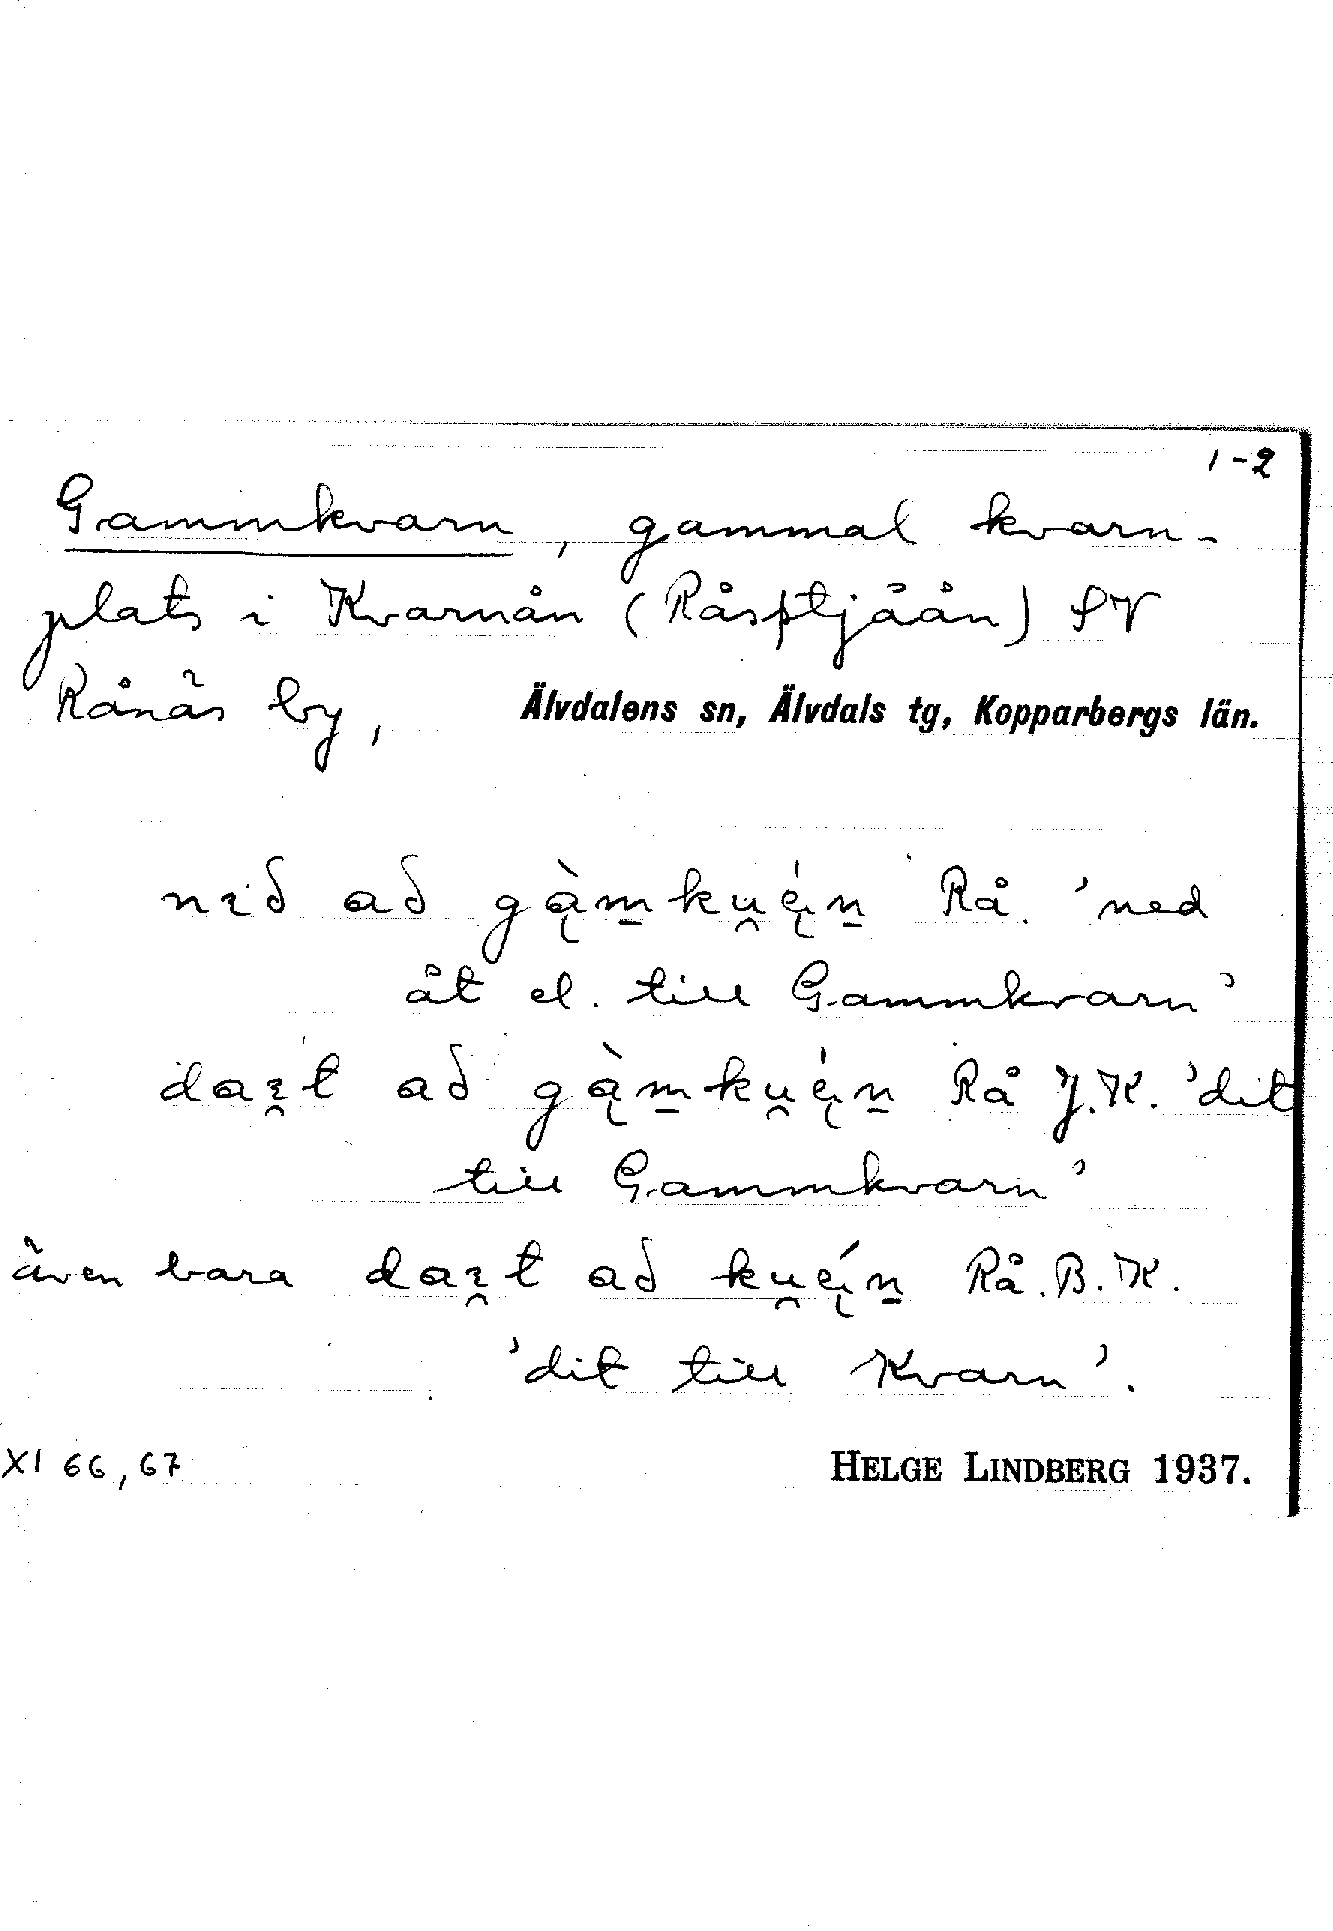 1-2
Gammkvarn, gammal kvarn-
plats i Kvarnån (Råsptjåån) SV
Rånäs by, Älvdalens sn, Älvdals tg, Kopparbergs län.
nɪð að gą̀m̲ku̯ę́n̲ Rå. 'ned
åt el. till Gammkvarn'
daɪ̯t að gą̀m̲ku̯ę́n̲ Rå J.K. 'dit
till Gammkvarn'
även bara daɪ̯t að ku̯ę́n̲ Rå. B.K.
'dit till Kvarn'.
XI 66, 67 HELGE LINDBERG 1937.